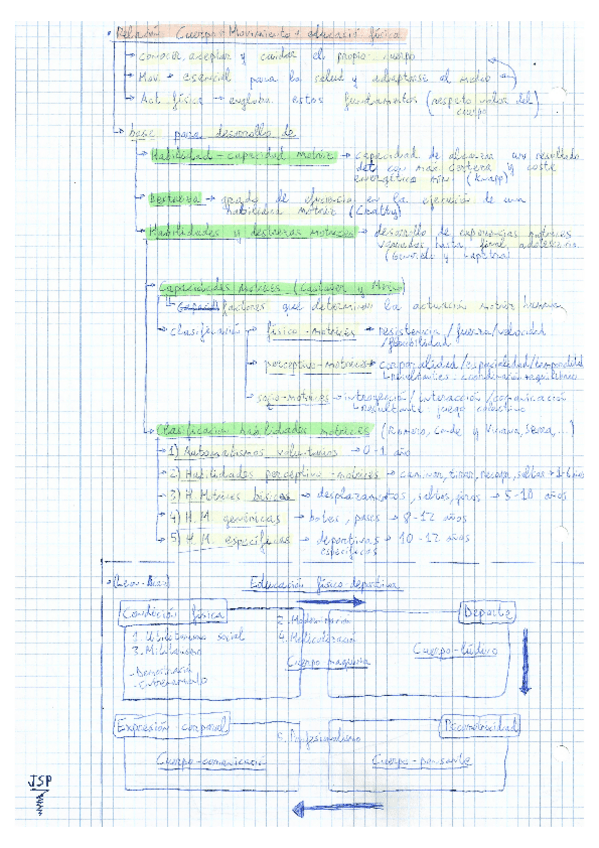 Relación Cuerpo-Movimiento educació física
conocer, aceptar y cuidar el propio cuerpo
Mov. esencial para la salud y adaptarse al medio
Act. física → engloba estos fundamentos (respeto valor del cuerpo)
base para desarrollo de
Habilidad-capacidad motriz → capacidad de alcanzar un resultado
con máx. certeza y coste
energético mín. (Knapp)
Destreza → grado de eficiencia en la ejecución de una
habilidad motriz (Cratty)
Habilidades y destrezas motrices → desarrollo de experiencias motrices
variadas, hasta adolescencia
Capacidades Motrices (Castañer y
factores que determinan la actuación motriz humana
clasificación → físico-motrices → resistencia/fuerza/velocidad
/flexibilidad
perceptivo-motrices → corporalidad/espacialidad/temporalidad
socio-motrices → introyección/interacción/comunicación
resultante juego colectivo
Clasificación habilidades motrices (Romero, Conde y Viciana, Serra, ...)
1) Automatismos voluntarios → 0-1 año
2) Habilidades perceptivo-motrices → caminar, tirar, recoger, saltos →
3) H. Motrices básicas → desplazamientos, saltos, giros →
4) H.M. genéricas → botes, pases → 8-12 años
5) H.M. específicas → deportivas → 10-12 años
específicas
Educación físico-deportiva
Condición física
2.
Deporte
1. Utilitarismo social
4. Medicalización
3. Militarismo
Cuerpo máquina
Cuerpo-lúdico
- Entrenamiento
Expresión corporal
5. Profesionalismo
Psicomotricidad
Cuerpo-comunicación
Cuerpo-pensante
JSP